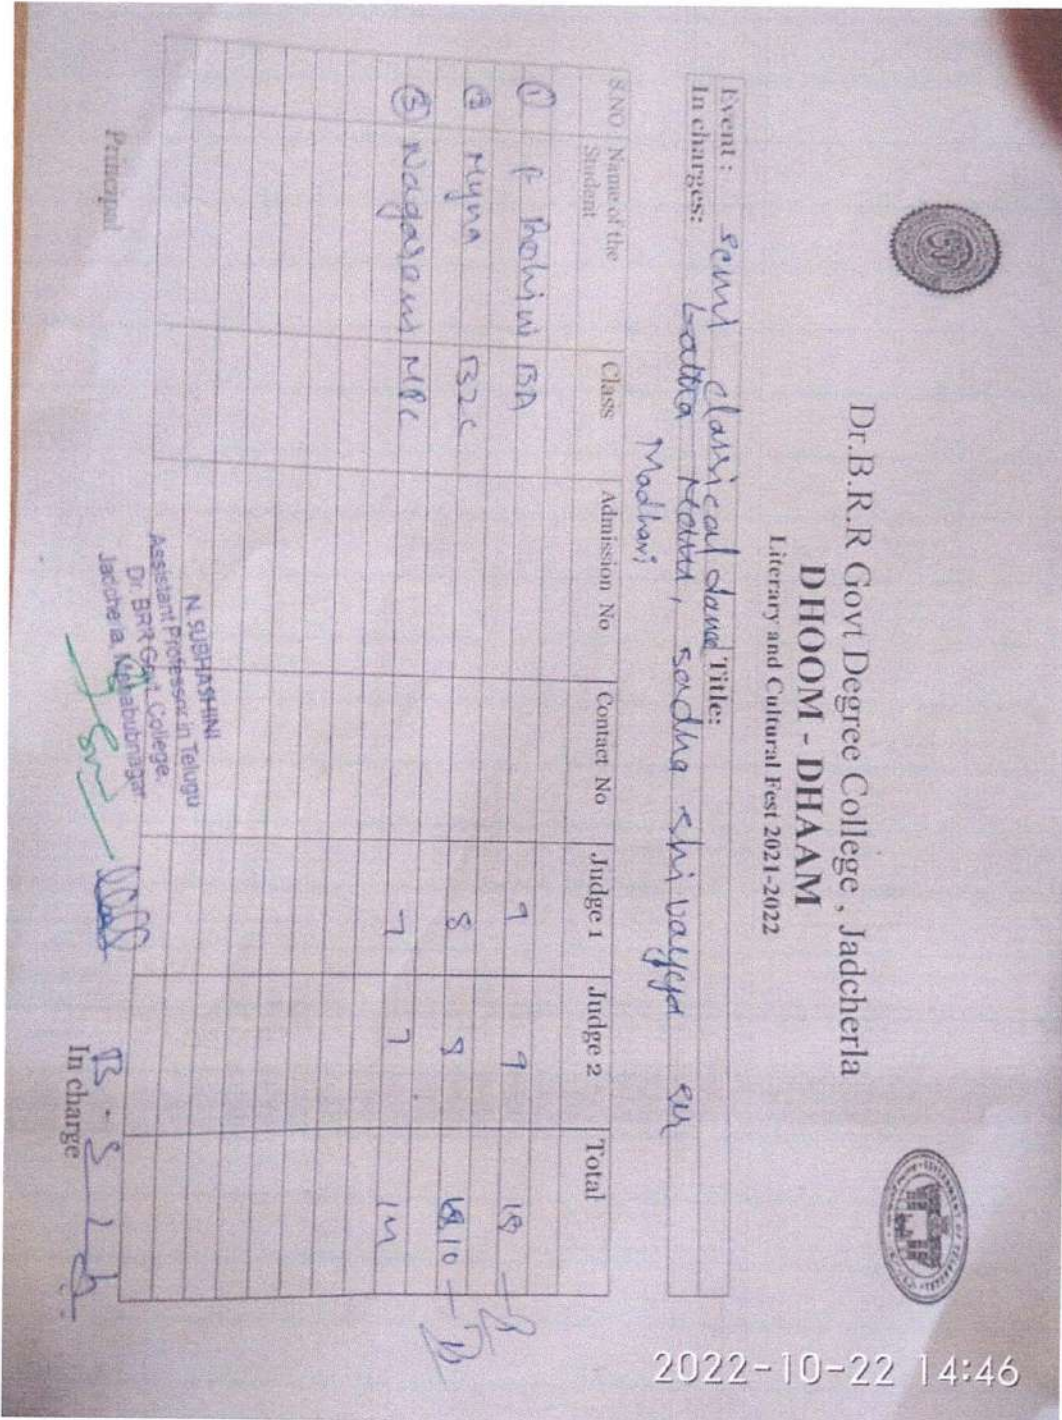 Dr.B.R.R Govt Degree College , Jadcherla
DHOOM - DHAAM
Literary and Cultural Fest 2021-2022
Event : semi classical dance Title:
In charges: sadha shivayya
Madhavi
S.NO Name of the Student Class Admission No Contact No Judge 1 Judge 2 Total
① P Rohini BA 9 9 18
② Myna BZC 8 8
③ MPC 7 7 14
N. SUBHASHINI
Assistant Professor in Telugu
Dr. BRR Govt. College,
Jadcherla, Mahabubnagar
Principal
In charge
2022-10-22 14:46